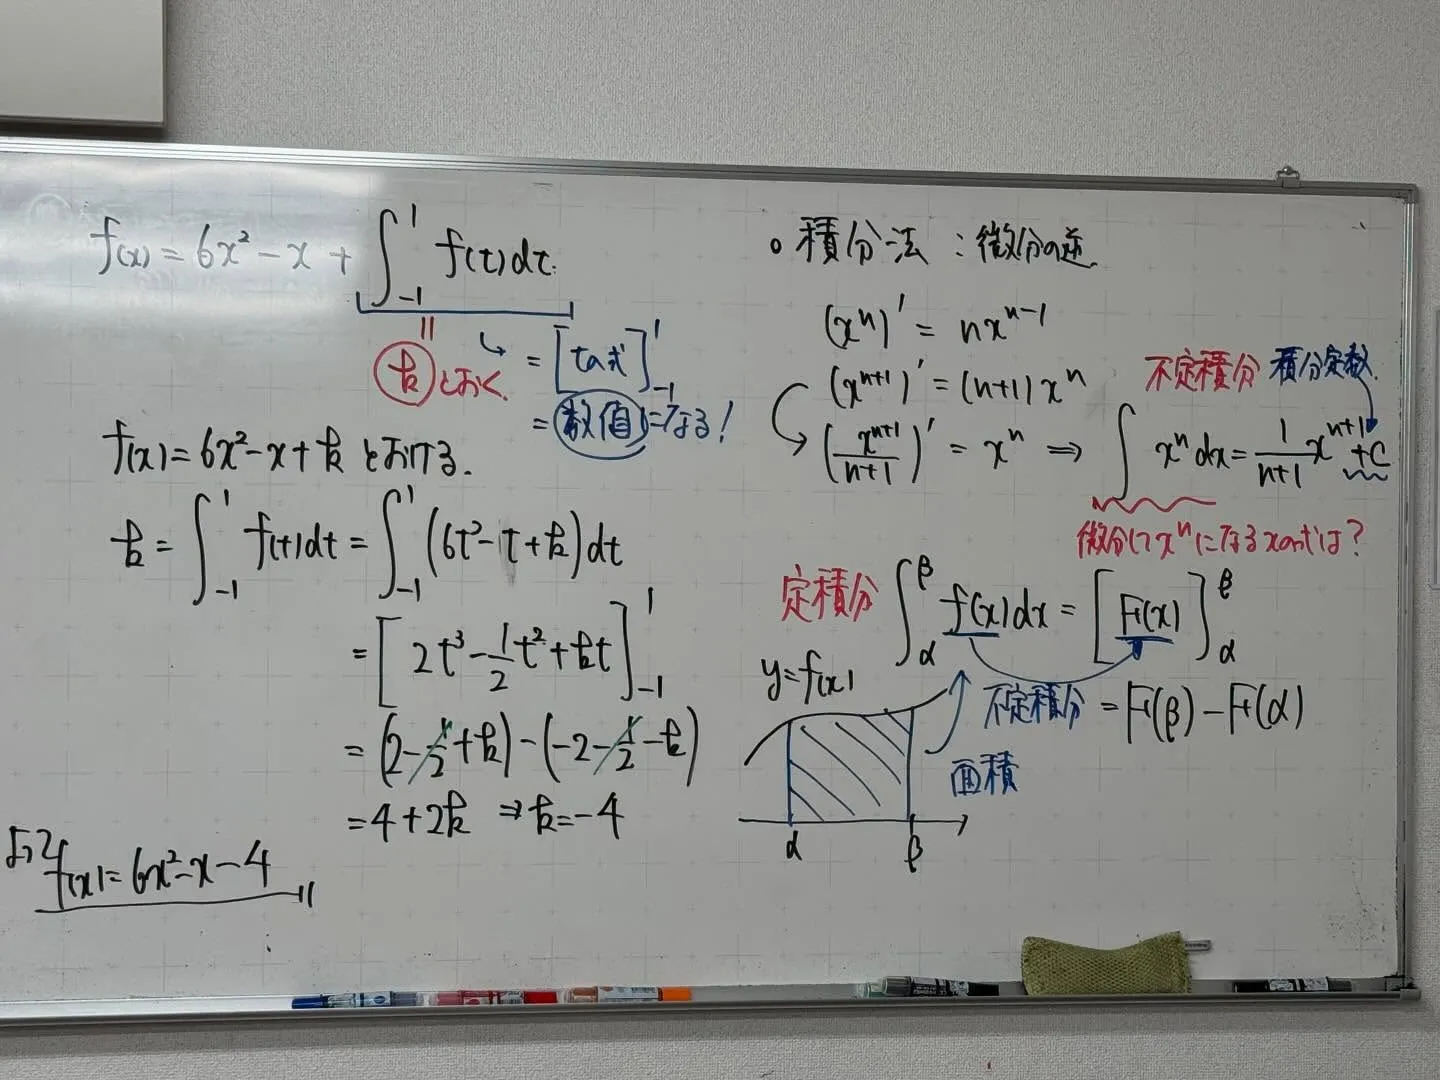 f(x) = 6x² − x + ∫₋₁¹ f(t)dt.
|| ↳ = [tの式]₋₁¹
kとおく = 数値になる！
f(x) = 6x² − x + k とおける.
k = ∫₋₁¹ f(t)dt = ∫₋₁¹ (6t² − t + k)dt
= [2t³ − 1/2 t² + kt]₋₁¹
= (2 − 1/2 + k) − (−2 − 1/2 − k)
= 4 + 2k ⇒ k = −4
よって
f(x) = 6x² − x − 4
○ 積分法：微分の逆
(xⁿ)' = nxⁿ⁻¹
(xⁿ⁺¹)' = (n+1)xⁿ
不定積分 積分定数
(xⁿ⁺¹/(n+1))' = xⁿ ⇒ ∫ xⁿ dx = 1/(n+1) xⁿ⁺¹ + C
微分してxⁿになるxの式は？
定積分 ∫_α^β f(x)dx = [F(x)]_α^β
y = f(x)
不定積分 = F(β) − F(α)
面積
α β